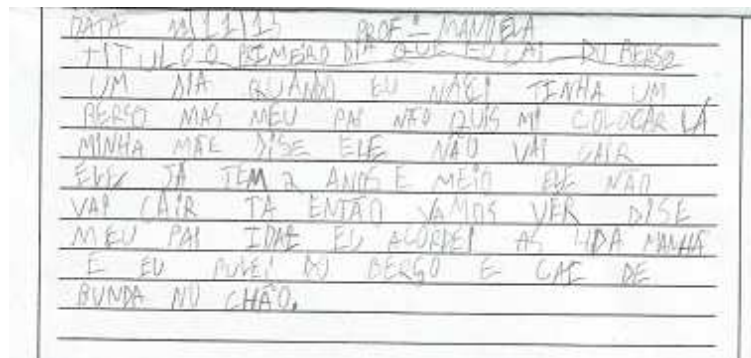 DATA 11/11/13 PROFª MANOELA
TITULO O PRIMERO DIA QUE EU CAI DU BERSO
UM DIA QUANDO EU NACI TINHA UM
BERSO MAS MEU PAI NÃO QUIS MI COLOCAR LÁ
MINHA MÃE DISE ELE NÃO VAI CAIR
ELE JÁ TEM 2 ANOS E MEIO ELE NÃO
VAI CAIR TA ENTÃO VAMOS VER DISE
MEU PAI IDAI EU ACORDEI AS 4 DA MANHÃ
E EU PULEI DO BERSO E CAI DE
BUNDA NU CHÃO.